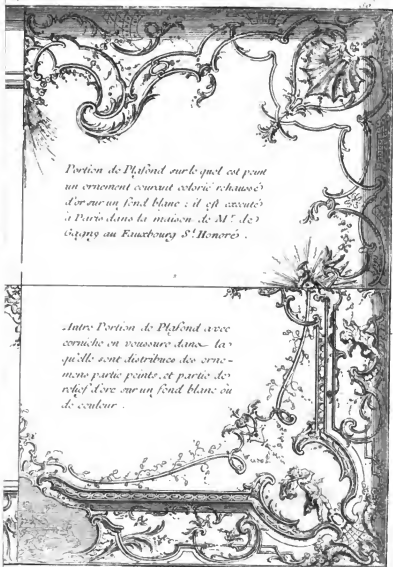 Portion de Plafond sur le quel est peint
un ornement courant colorié rehaussé
d'or sur un fond blanc : il est executé
à Paris dans la maison de M.r de
Gagny au Fauxbourg S.t Honoré .
Autre Portion de Plafond avec
corniche en voussure dans la
qu'elle sont distribués des orne-
mens partie peints, et partie de
relief d'ore sur un fond blanc ou
de couleur .